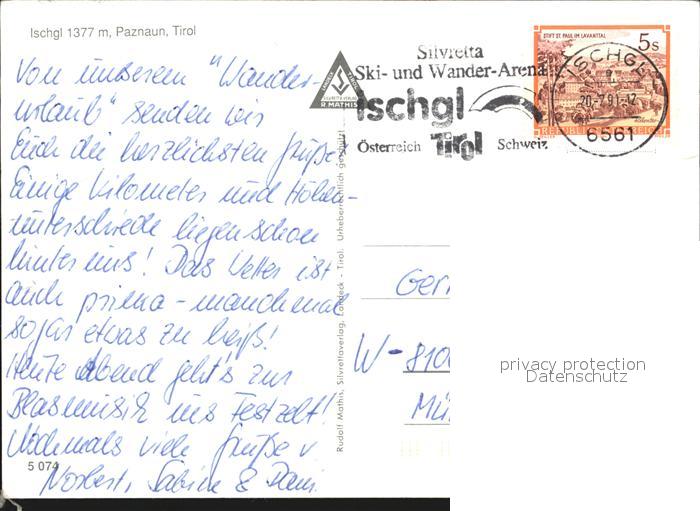 Ischgl 1377 m, Paznaun, Tirol
Von unserem "Wander-
urlaub" senden wir
Euch die herzlichsten Grüße.
Einige Kilometer und Höhen-
unterschiede liegen schon
hinter uns! Das Wetter ist
auch prima - manchmal
sogar etwas zu heiß!
Heute Abend geht's zur
Blasmusik ins Festzelt!
Nochmals viele Grüße v.
Norbert, Sabine & Dani.
5 074
R MATHIS
Rudolf Mathis, Silvrettaverlag, Landeck - Tirol. Urheberrechtlich geschützt
Silvretta
Ski- und Wander-Arena
Ischgl
Österreich Tirol Schweiz
STIFT ST. PAUL IM LAVANTTAL
5 S
REPUBLIK ÖSTERREICH
ISCHGL
20.-7.91-12
6561
W-810
privacy protection
Datenschutz